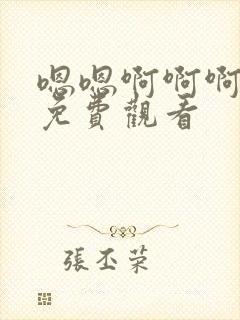 嗯嗯啊啊啊
免費觀看
張丕荣